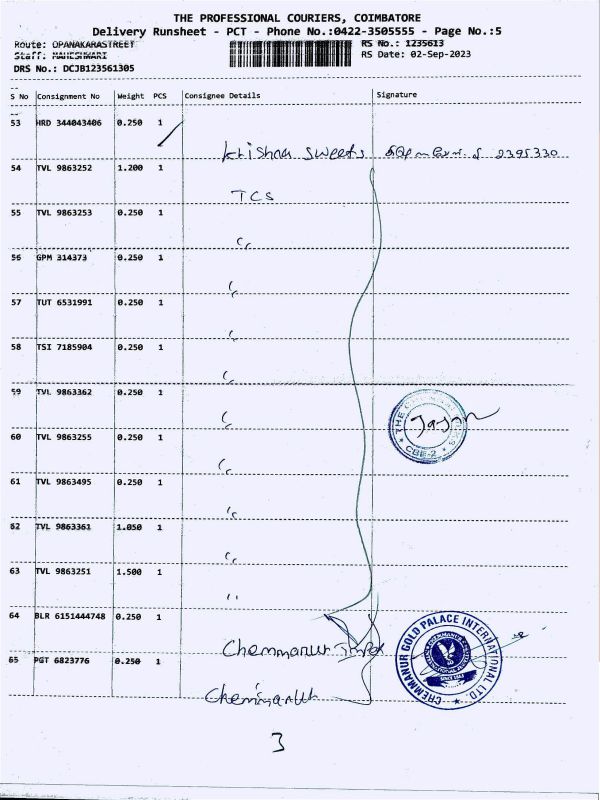 THE PROFESSIONAL COURIERS, COIMBATORE
Delivery Runsheet - PCT - Phone No.:0422-3505555 - Page No.:5
Route: OPANAKARASTREET RS No.: 1235613
Staff: MAHESHWARI RS Date: 02-Sep-2023
DRS No.: DCJB123561305
S No Consignment No Weight PCS Consignee Details Signature
53 HRD 344043406 0.250 1
Krishna Sweets 2395330
54 TVL 9863252 1.200 1
TCS
55 TVL 9863253 0.250 1
56 GPM 314373 0.250 1
57 TUT 6531991 0.250 1
58 TSI 7185904 0.250 1
59 TVL 9863362 0.250 1
60 TVL 9863255 0.250 1
CBE-2
61 TVL 9863495 0.250 1
62 TVL 9863361 1.050 1
63 TVL 9863251 1.500 1
64 BLR 6151444748 0.250 1
Chemmanur
65 PGT 6823776 0.250 1
CHEMMANUR GOLD PALACE INTERNATIONAL LTD.
3